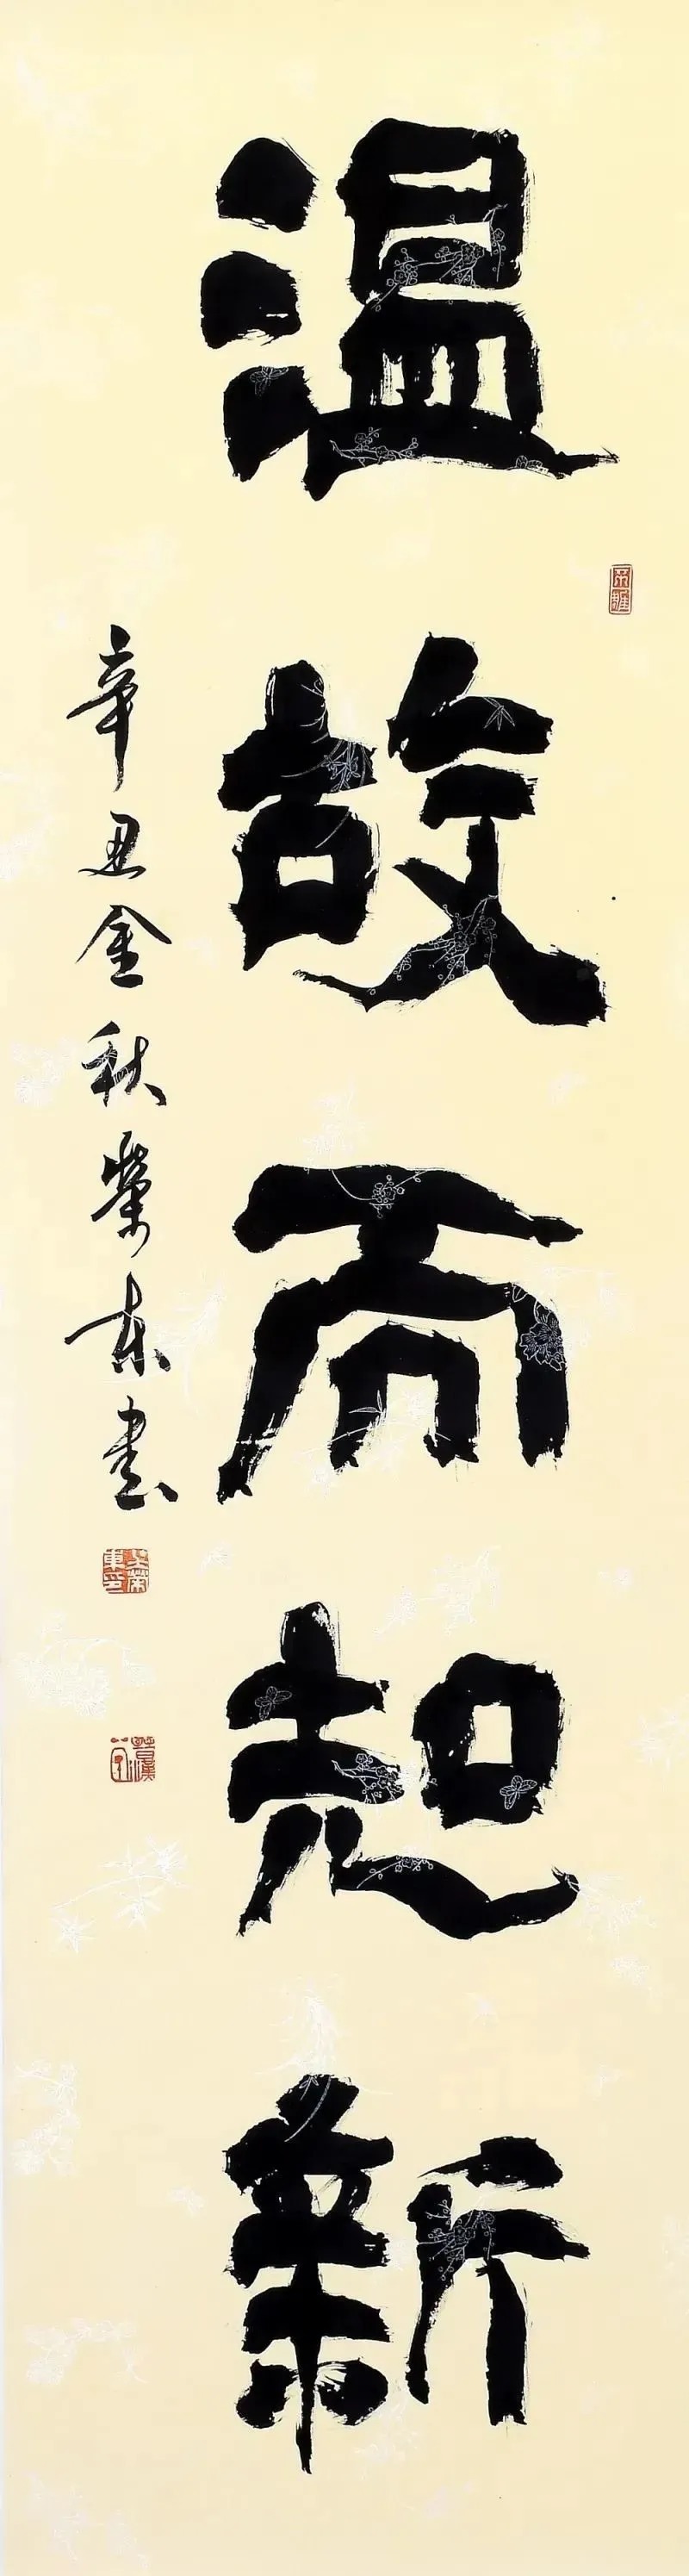 温故而知新
辛丑金秋榮东書